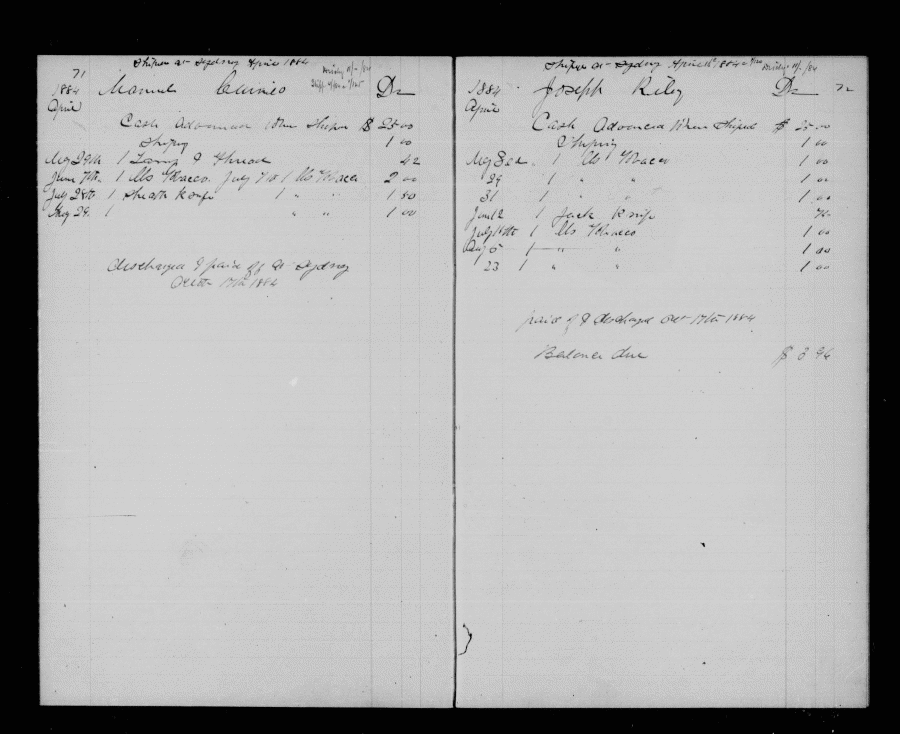 71
Shipped at Sydney April 1884
1884 Manuel Dr
April
Cash Advanced When Shiped $ 25 00
Shiping 1 00
May 29th 1 Lamp & Thread 42
June 7th 1 lb Tobacco. July 7th 1 lb Tobacco 2 00
July 28th 1 Sheath Knife 1 " " 1 50
Aug 29 1 " " 1 00
discharged & paid off at Sydney
Octob 17th 1884
Shiped at Sydney April 1884
1884 Joseph Riley Dr 72
April
Cash Advanced When Shiped $ 25 00
Shiping 1 00
May 1 lb Tobacco 1 00
29 1 " " 1 00
31 1 " " 1 00
June 12 1 Jack Knife
July 1 lb Tobacco 1 00
Aug 5 1 " " 1 00
23 1 " " 1 00
paid of & discharged Oct 17th 1884
Balance due $ 3 96